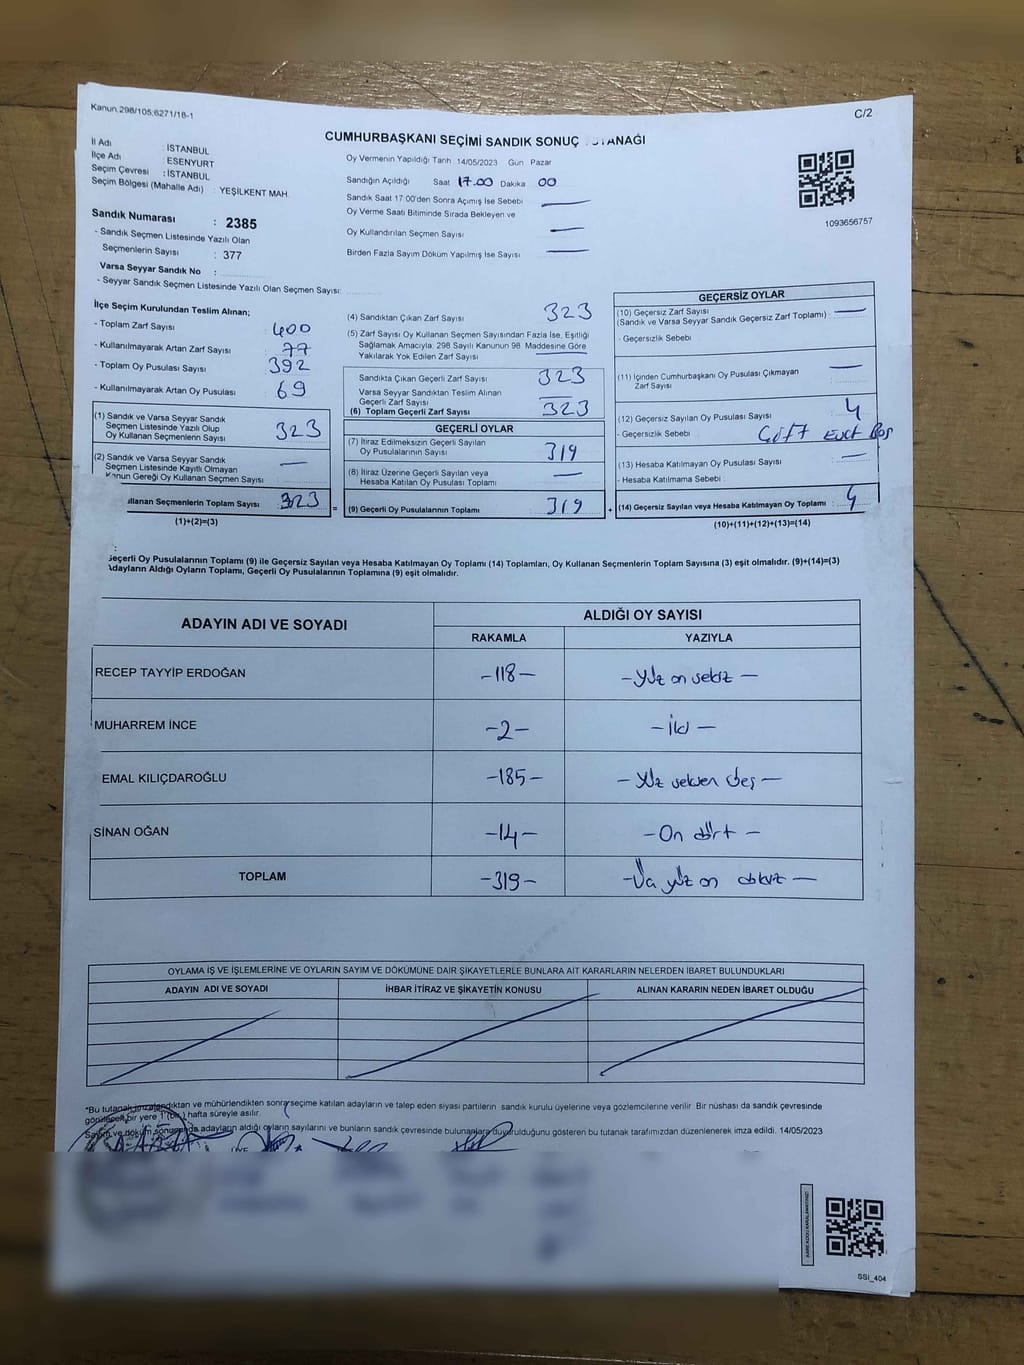 Kanun 298/105;6271/18-1
C/2
CUMHURBAŞKANI SEÇİMİ SANDIK SONUÇ TUTANAĞI
İl Adı : İSTANBUL
İlçe Adı : ESENYURT
Seçim Çevresi : İSTANBUL
Seçim Bölgesi (Mahalle Adı) : YEŞİLKENT MAH.
Sandık Numarası : 2385
- Sandık Seçmen Listesinde Yazılı Olan
Seçmenlerin Sayısı : 377
Varsa Seyyar Sandık No :
- Seyyar Sandık Seçmen Listesinde Yazılı Olan Seçmen Sayısı:
Oy Vermenin Yapıldığı Tarih 14/05/2023 Gün Pazar
Sandığın Açıldığı Saat 17.00 Dakika 00
Sandık Saat 17:00'den Sonra Açımış İse Sebebi
Oy Verme Saati Bitiminde Sırada Bekleyen ve
Oy Kullandırılan Seçmen Sayısı
Birden Fazla Sayım Döküm Yapılmış İse Sayısı
1093656757
İlçe Seçim Kurulundan Teslim Alınan;
- Toplam Zarf Sayısı 400
- Kullanılmayarak Artan Zarf Sayısı : 77
- Toplam Oy Pusulası Sayısı : 392
- Kullanılmayarak Artan Oy Pusulası : 69
(1) Sandık ve Varsa Seyyar Sandık
Seçmen Listesinde Yazılı Olup
Oy Kullanan Seçmenlerin Sayısı 323
(2) Sandık ve Varsa Seyyar Sandık
Seçmen Listesinde Kayıtlı Olmayan
Kanun Gereği Oy Kullanan Seçmen Sayısı —
ullanan Seçmenlerin Toplam Sayısı : 323
(1)+(2)=(3)
(4) Sandıktan Çıkan Zarf Sayısı 323
(5) Zarf Sayısı Oy Kullanan Seçmen Sayısından Fazla İse, Eşitliği
Sağlamak Amacıyla, 298 Sayılı Kanunun 98. Maddesine Göre
Yakılarak Yok Edilen Zarf Sayısı
Sandıkta Çıkan Geçerli Zarf Sayısı 323
Varsa Seyyar Sandıktan Teslim Alınan
Geçerli Zarf Sayısı —
(6) Toplam Geçerli Zarf Sayısı 323
=
GEÇERLİ OYLAR
(7) İtiraz Edilmeksizin Geçerli Sayılan
Oy Pusulalarının Sayısı : 319
(8) İtiraz Üzerine Geçerli Sayılan veya
Hesaba Katılan Oy Pusulası Toplamı —
(9) Geçerli Oy Pusulalarının Toplamı : 319
+
GEÇERSİZ OYLAR
(10) Geçersiz Zarf Sayısı
(Sandık ve Varsa Seyyar Sandık Geçersiz Zarf Toplamı) : —
- Geçersizlik Sebebi :
(11) İçinden Cumhurbaşkanı Oy Pusulası Çıkmayan
Zarf Sayısı : —
(12) Geçersiz Sayılan Oy Pusulası Sayısı : 4
- Geçersizlik Sebebi : Çift Evet Boş
(13) Hesaba Katılmayan Oy Pusulası Sayısı : —
- Hesaba Katılmama Sebebi :
(14) Geçersiz Sayılan veya Hesaba Katılmayan Oy Toplamı : 4
(10)+(11)+(12)+(13)=(14)
:
Geçerli Oy Pusulalarının Toplamı (9) ile Geçersiz Sayılan veya Hesaba Katılmayan Oy Toplamı (14) Toplamları, Oy Kullanan Seçmenlerin Toplam Sayısına (3) eşit olmalıdır. (9)+(14)=(3)
Adayların Aldığı Oyların Toplamı, Geçerli Oy Pusulalarının Toplamına (9) eşit olmalıdır.
ADAYIN ADI VE SOYADI ALDIĞI OY SAYISI
RAKAMLA YAZIYLA
RECEP TAYYİP ERDOĞAN -118- -yüz on sekiz-
MUHARREM İNCE -2- -iki-
EMAL KILIÇDAROĞLU -185- -yüz seksen beş-
SİNAN OĞAN -14- -On dört-
TOPLAM -319- -Üç yüz on dokuz-
OYLAMA İŞ VE İŞLEMLERİNE VE OYLARIN SAYIM VE DÖKÜMÜNE DAİR ŞİKAYETLERLE BUNLARA AİT KARARLARIN NELERDEN İBARET BULUNDUKLARI
ADAYIN ADI VE SOYADI İHBAR İTİRAZ VE ŞİKAYETİN KONUSU ALINAN KARARIN NEDEN İBARET OLDUĞU
*Bu tutanak imzalandıktan ve mühürlendikten sonra seçime katılan adayların ve talep eden siyasi partilerin sandık kurulu üyelerine veya gözlemcilerine verilir. Bir nüshası da sandık çevresinde
görülecek bir yere 1 (bir) hafta süreyle asılır.
Sayım ve döküm sonucunda adayların aldığı oyların sayılarını ve bunların sandık çevresinde bulunanlara duyurulduğunu gösteren bu tutanak tarafımızdan düzenlenerek imza edildi. 14/05/2023
SSİ_404